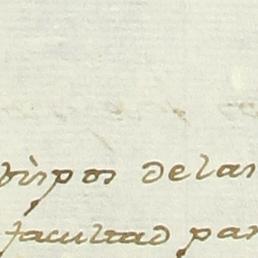 bispos delas
facultad par